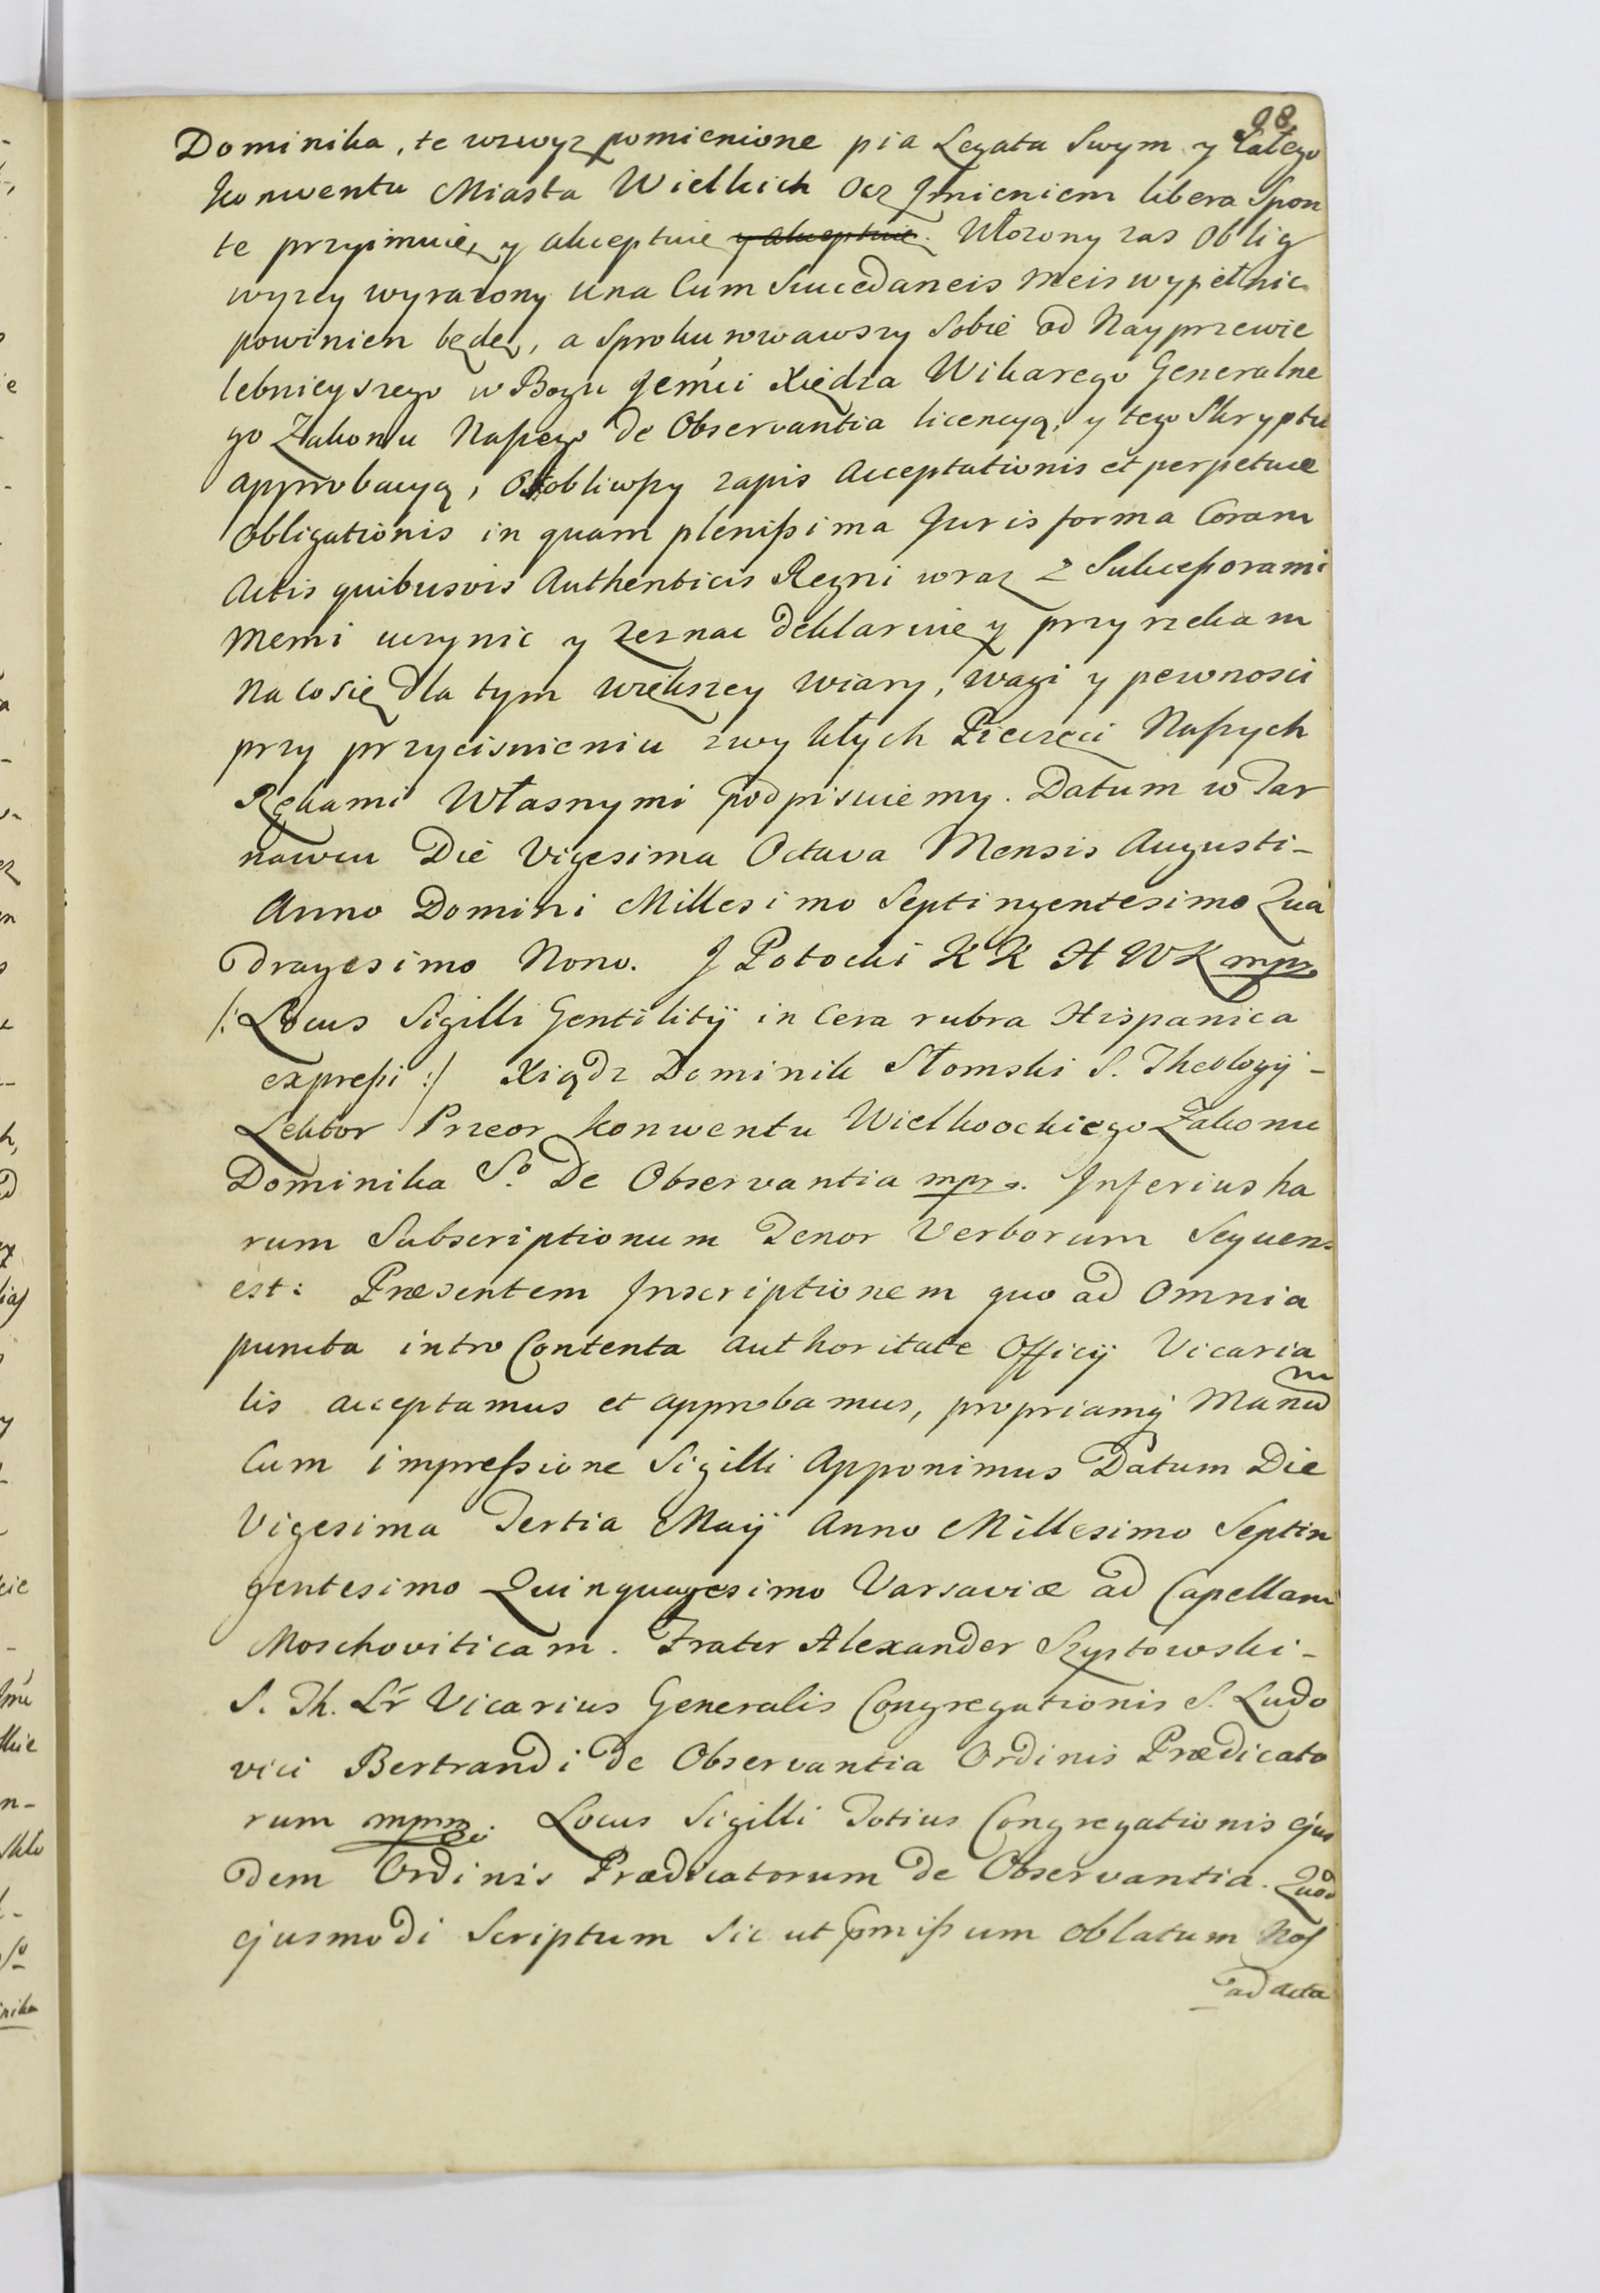 98
Dominika, te wzwyz pomienione pia Legata Swym y Całego
Konwentu Miasta Wielkich Ocz Jmieniem libera Spon
te przyimuię y akceptuię y akceptuię. Włozony zas Oblig
wyzey wyrazony una Cum Succedaneis meis wypełnic
powinien będę, a Sprokurowawszy Sobie od Nayprzewie
lebnieyszego w Bogu Jemći Xiędza Wikarego Generalne
go Zakonu Naßego de Observantia licencyą, y tego Skryptu
approbacyą, Osobliwßy zapis Acceptationis et perpetuæ
Obligationis in quam plenißima Juris forma Coram
Actis quibusvis Authenticis Regni wraz z Sukceßorami
memi uczynic y zeznac deklaruię y przyrzekam
na co się dla tym większey wiary, wagi y pewnosci
przy przycisnieniu zwykłych Pieczęci Naßych
Rękami Własnymi podpisuiemy. Datum w Tar
nawcu Die Vigesima Octava Mensis Augusti-
Anno Domini Millesimo Septingentesimo Qua
dragesimo Nono. J Potocki K K H W K mpr
/: Locus Sigilli Gentilitÿ in Cera rubra Hispanica
expreßi :/ Xiądz Dominik Słomski S. Theologÿ-
Lektor Przeor konwentu Wielkoockiego Zakonu
Dominika So. De Observantia mpr. Inferius ha
rum Subscriptionum Tenor Verborum Sequens
est: Præsentem Inscriptionem quo ad Omnia
puncta intro Contenta authoritate Officÿ Vicaria
lis acceptamus et approbamus, propriamq́ Manum
Cum impreßione Sigilli Apponimus Datum Die
Vigesima Tertia Maÿ Anno Millesimo Septin
gentesimo Quinquagesimo Varsaviæ ad Capellam
Moschoviticam. Frater Alexander Szyptowski-
S. Th. Lr Vicarius Generalis Congregationis S. Ludo
vici Bertrandi de Observantia Ordinis Prædicato
rum mpr. Locus Sigilli Totius Congregationis ejus
dem Ordinis Prædicatorum de Observantia. Quod
ejusmodi Scriptum Sic ut pmißum oblatum Nos
ad acta